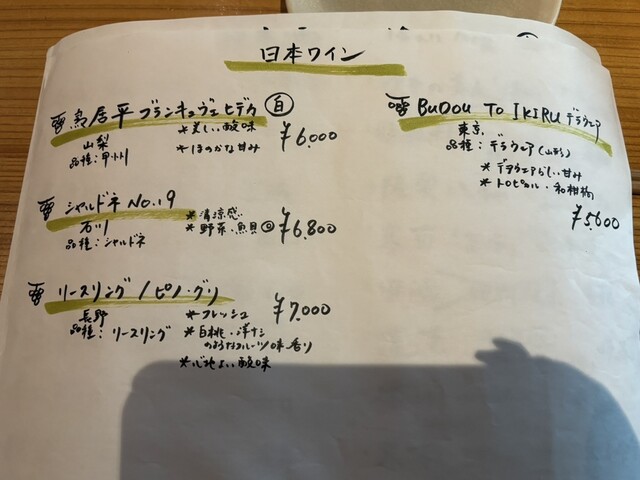 日本ワイン
鳥居平 ブランキュヴェヒデカ 白
山梨
品種：甲州
＊美しい酸味
＊ほのかな甘み
¥6,000
シャルドネ No.19
石川
品種：シャルドネ
＊清涼感
＊野菜・魚貝◎
¥6,800
リースリング / ピノ・グリ
長野
品種：リースリング
＊フレッシュ
＊白桃・洋ナシ
のようなフルーツ味香り
＊心地よい酸味
¥7,000
BUDOU TO IKIRU デラウェア
東京
品種：デラウェア（山形）
＊デラウェアらしい甘み
＊トロピカル・和柑橘
¥5,600